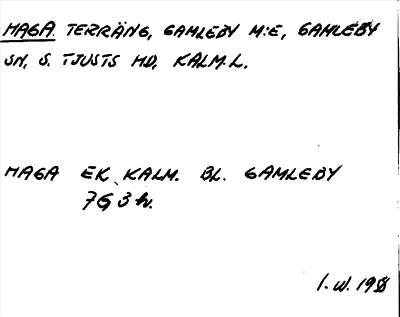 HAGA TERRÄNG, GAMLEBY M:E, GAMLEBY
SN, S. TJUSTS HD, KALM. L.
HAGA EK, KALM. BL. GAMLEBY
7G 3h.
I. W. 198